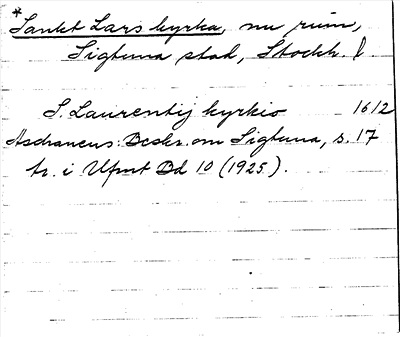 *
Sankt Lars kyrka, nu ruin,
Sigtuna stad, Stockh. l.
S. Laurentij kyrkio 1612
Aschaneus: Beskr. om Sigtuna, s. 17
tr. i Ufmt Bd 10 (1925).